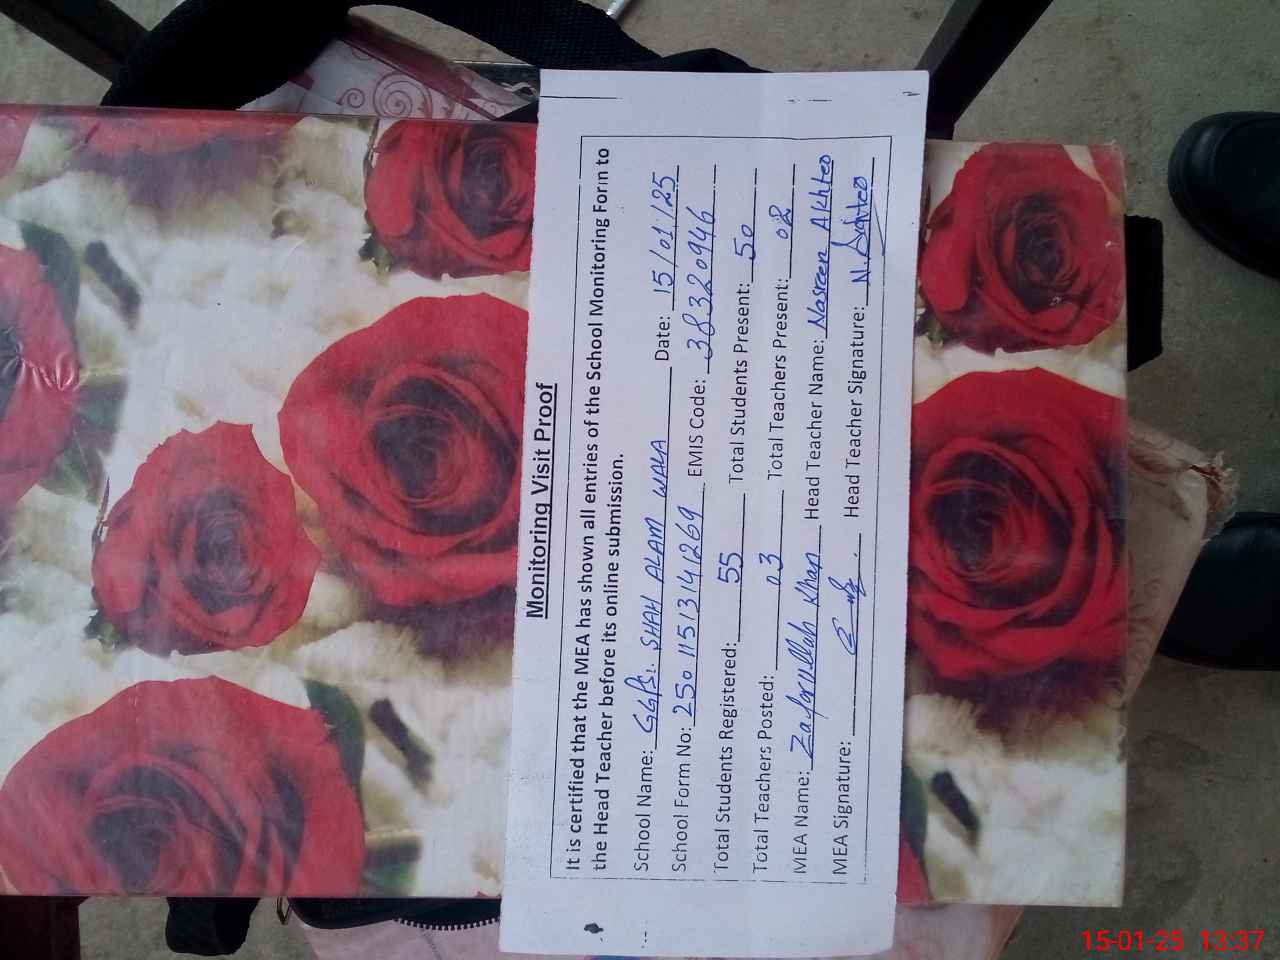 Monitoring Visit Proof
It is certified that the MEA has shown all entries of the School Monitoring Form to
the Head Teacher before its online submission.
School Name: GGPS. SHAH ALAM WALA Date: 15/01/25
School Form No: 250115131412​69 EMIS Code: 38320946
Total Students Registered: 55 Total Students Present: 50
Total Teachers Posted: 03 Total Teachers Present: 02
MEA Name: Zafarullah Khan Head Teacher Name: Nasreen Akhter
MEA Signature: Head Teacher Signature: N. Akhter
15-01-25 13:37